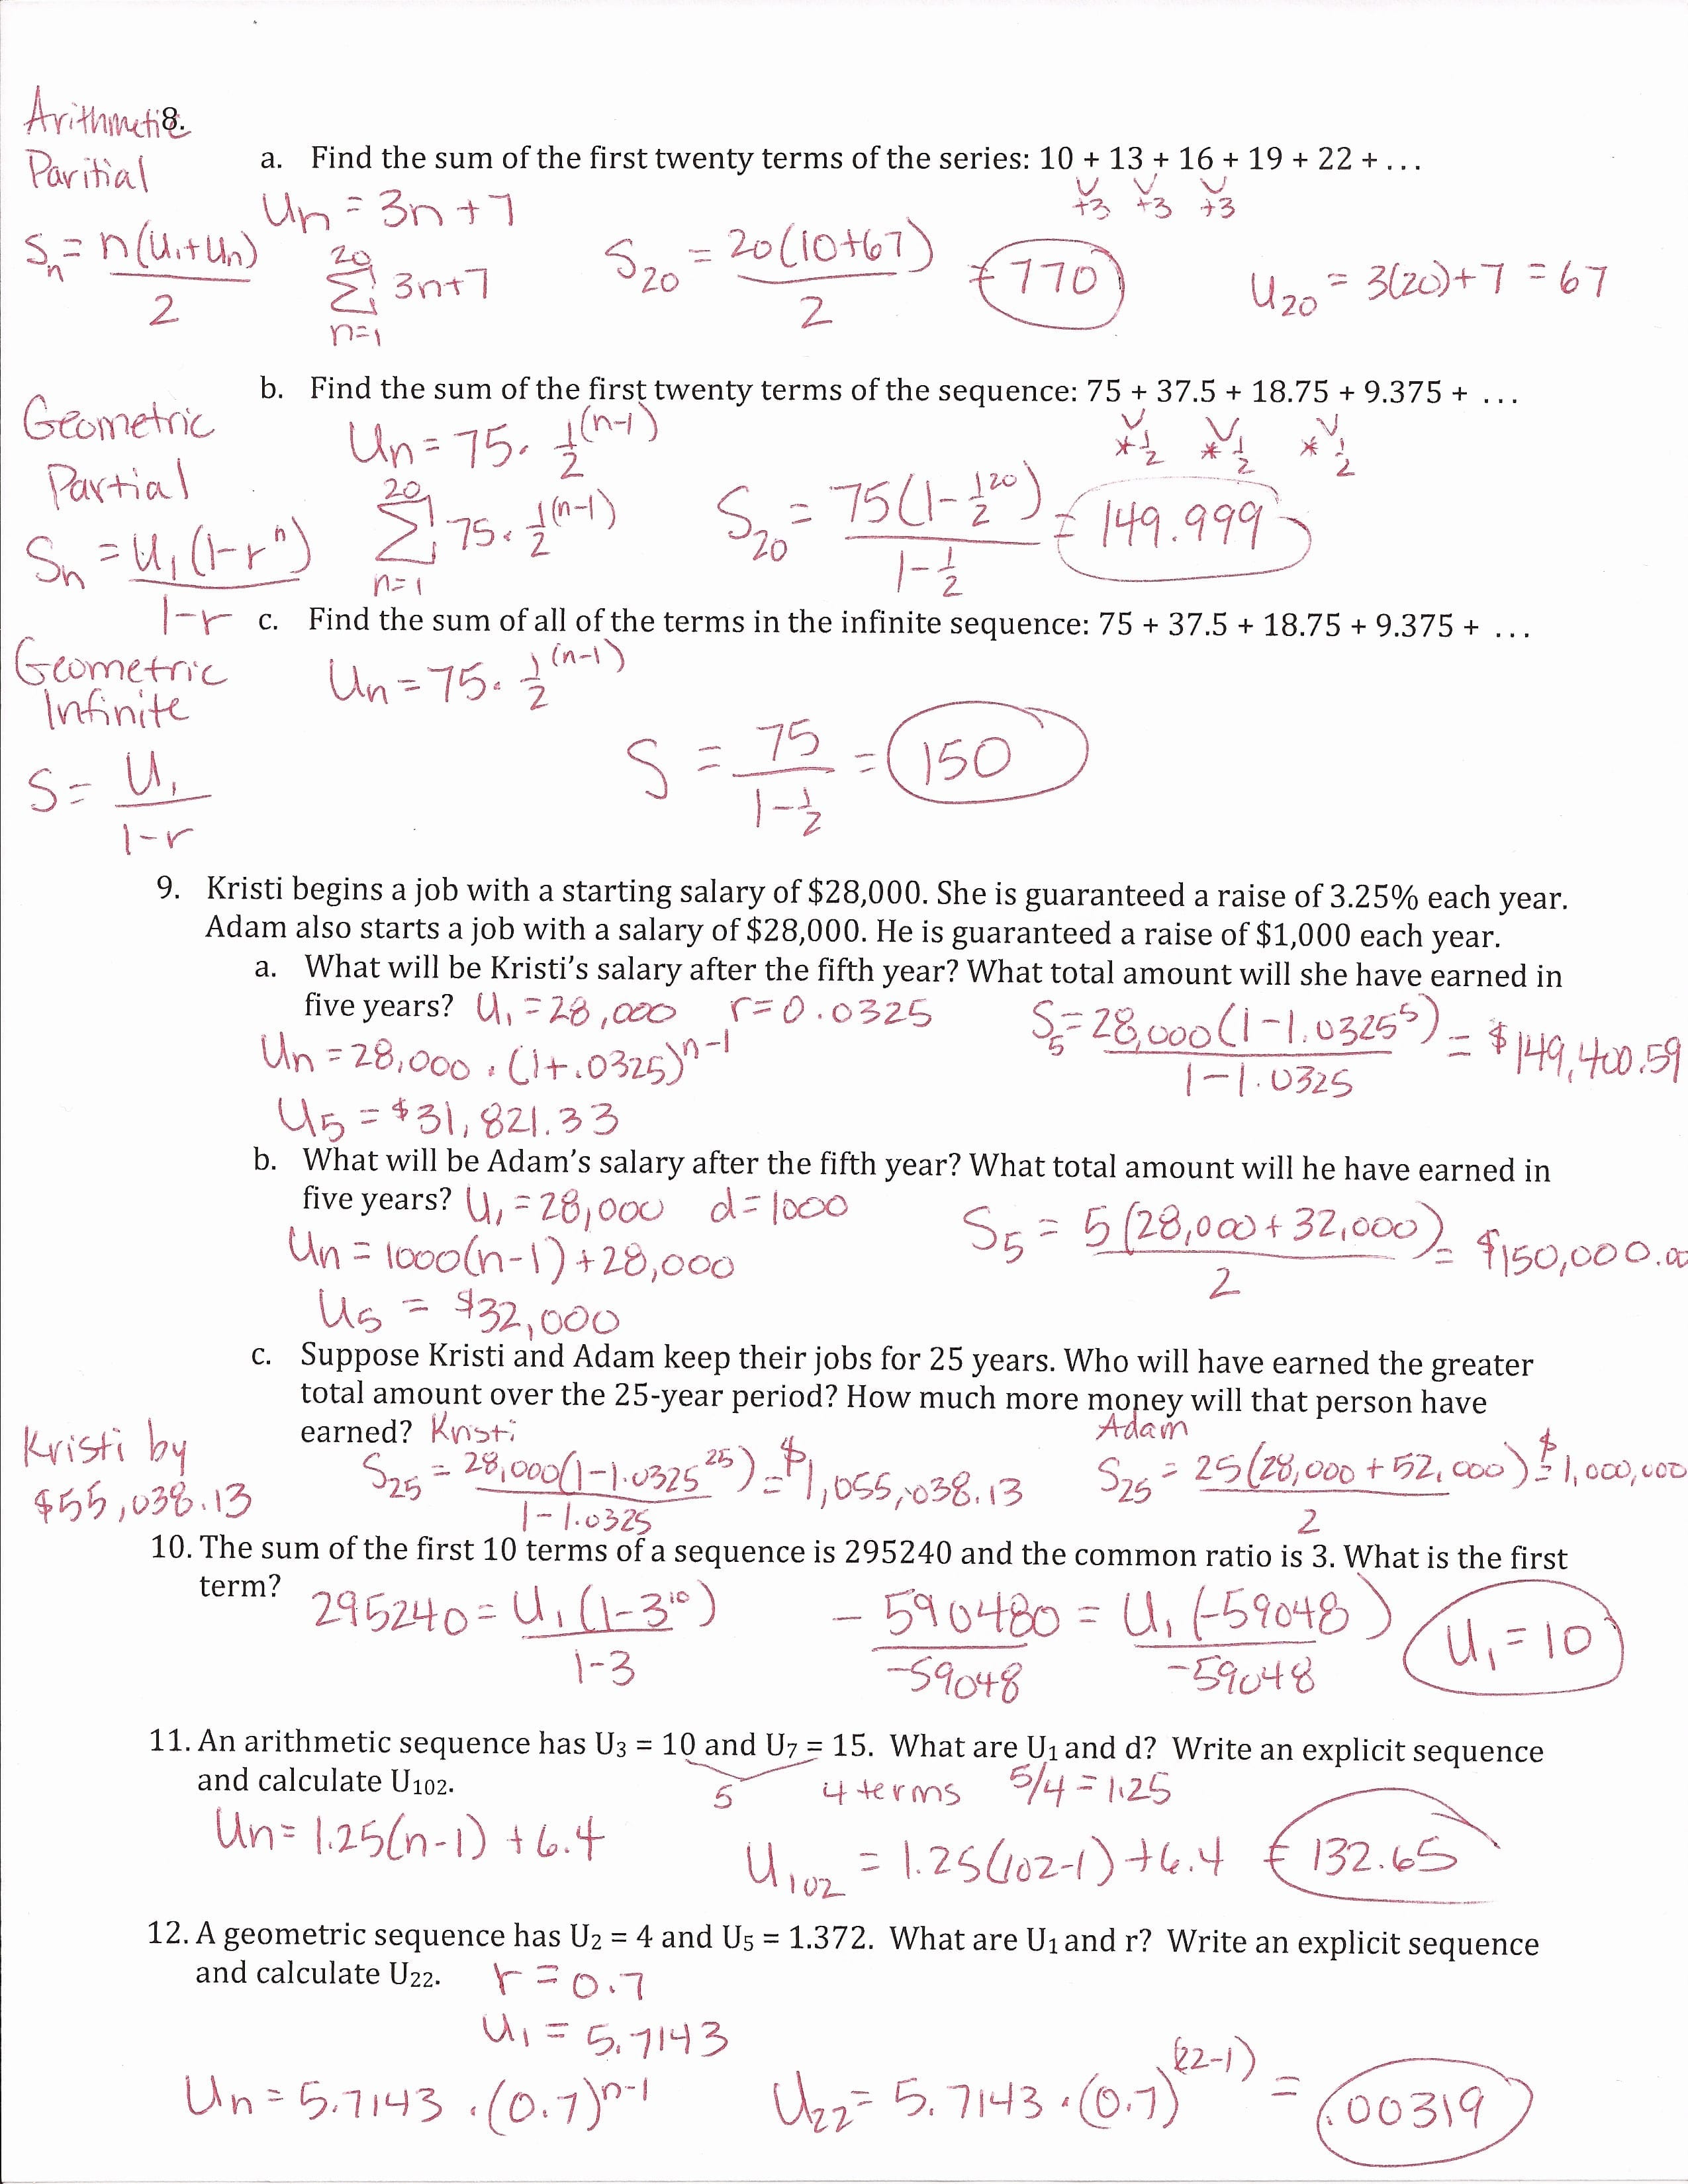 Arithmetic 8.
Paritial
a. Find the sum of the first twenty terms of the series: 10 + 13 + 16 + 19 + 22 + ...
+3 +3 +3
Un = 3n+7
Sn = n(U1+Un) / 2
20 Σ n=1 3n+7
S20 = 20(10+67) / 2 = 770
U20 = 3(20)+7 = 67
b. Find the sum of the first twenty terms of the sequence: 75 + 37.5 + 18.75 + 9.375 + ...
*1/2 *1/2 *1/2
Geometric
Partial
Un = 75 · 1/2^(n-1)
Sn = U1(1-r^n) / 1-r
20 Σ n=1 75 · 1/2^(n-1)
S20 = 75(1-1/2^20) / 1-1/2 = 149.999
c. Find the sum of all of the terms in the infinite sequence: 75 + 37.5 + 18.75 + 9.375 + ...
Geometric
Infinite
Un = 75 · 1/2^(n-1)
S = U1 / 1-r
S = 75 / 1-1/2 = 150
9. Kristi begins a job with a starting salary of $28,000. She is guaranteed a raise of 3.25% each year.
Adam also starts a job with a salary of $28,000. He is guaranteed a raise of $1,000 each year.
a. What will be Kristi's salary after the fifth year? What total amount will she have earned in
five years? U1 = 28,000 r = 0.0325
S5 = 28,000(1-1.0325^5) / 1-1.0325 = $149,400.59
Un = 28,000 · (1+.0325)^n-1
U5 = $31,821.33
b. What will be Adam's salary after the fifth year? What total amount will he have earned in
five years? U1 = 28,000 d = 1000
S5 = 5(28,000+32,000) / 2 = $150,000.00
Un = 1000(n-1)+28,000
U5 = $32,000
c. Suppose Kristi and Adam keep their jobs for 25 years. Who will have earned the greater
total amount over the 25-year period? How much more money will that person have
earned? Kristi Adam
Kristi by
$55,038.13
S25 = 28,000(1-1.0325^25) / 1-1.0325 = $1,055,038.13
S25 = 25(28,000+52,000) / 2 = $1,000,000
10. The sum of the first 10 terms of a sequence is 295240 and the common ratio is 3. What is the first
term?
295240 = U1(1-3^10) / 1-3
-590480 / -59048 = U1(-59048) / -59048
U1 = 10
11. An arithmetic sequence has U3 = 10 and U7 = 15. What are U1 and d? Write an explicit sequence
and calculate U102. 5 4 terms 5/4 = 1.25
Un = 1.25(n-1) + 6.4
U102 = 1.25(102-1)+6.4 = 132.65
12. A geometric sequence has U2 = 4 and U5 = 1.372. What are U1 and r? Write an explicit sequence
and calculate U22. r = 0.7
U1 = 5.7143
Un = 5.7143 · (0.7)^n-1
U22 = 5.7143 · (0.7)^(22-1) = .00319